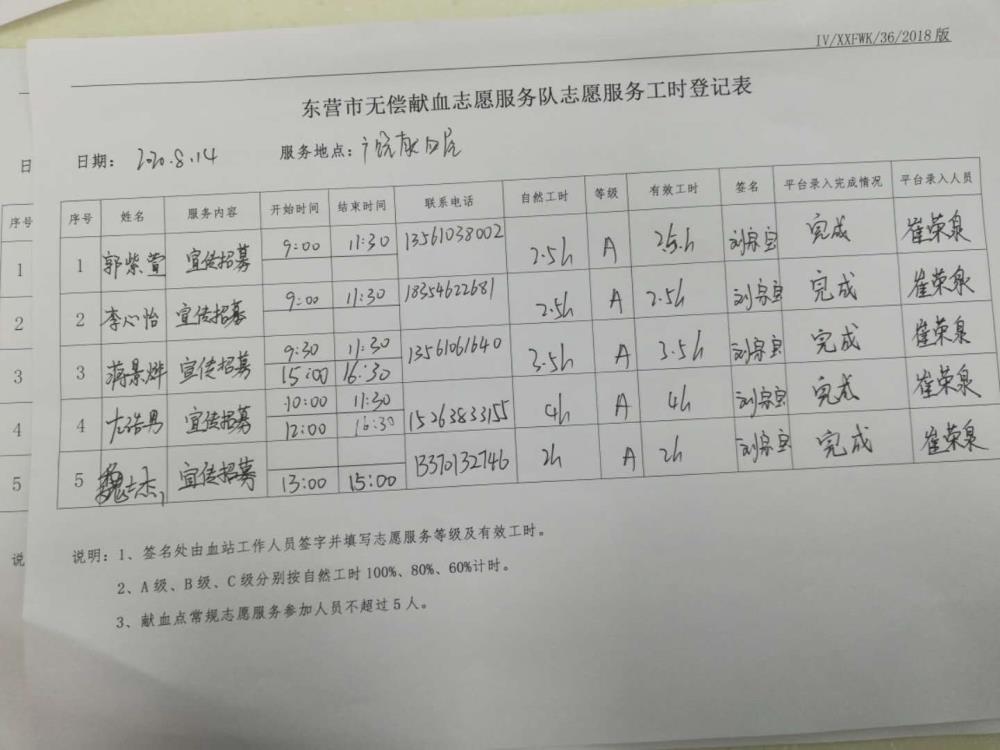 IV/XXFWK/36/2018 版
东营市无偿献血志愿服务队志愿服务工时登记表
日期： 2020.8.14 服务地点：广饶献血屋
序号 序号 姓名 服务内容 开始时间 结束时间 联系电话 自然工时 等级 有效工时 签名 平台录入完成情况 平台录入人员
1 1 郭紫萱 宣传招募 9:00 11:30 13561038002 2.5h A 2.5h 刘宗宝 完成 崔荣泉
2 2 李心怡 宣传招募 9:00 11:30 18354622681 2.5h A 2.5h 刘宗宝 完成 崔荣泉
3 3 蒋景烨 宣传招募 9:30 11:30 13561061640 3.5h A 3.5h 刘宗宝 完成 崔荣泉
15:00 16:30
4 4 左浩男 宣传招募 10:00 11:30 15263833155 4h A 4h 刘宗宝 完成 崔荣泉
12:00 16:30
5 5 魏志杰 宣传招募 13:00 15:00 13370132746 2h A 2h 刘宗宝 完成 崔荣泉
说明：1、签名处由血站工作人员签字并填写志愿服务等级及有效工时。
2、A 级、B 级、C 级分别按自然工时 100%、80%、60%计时。
3、献血点常规志愿服务参加人员不超过 5 人。
日
说